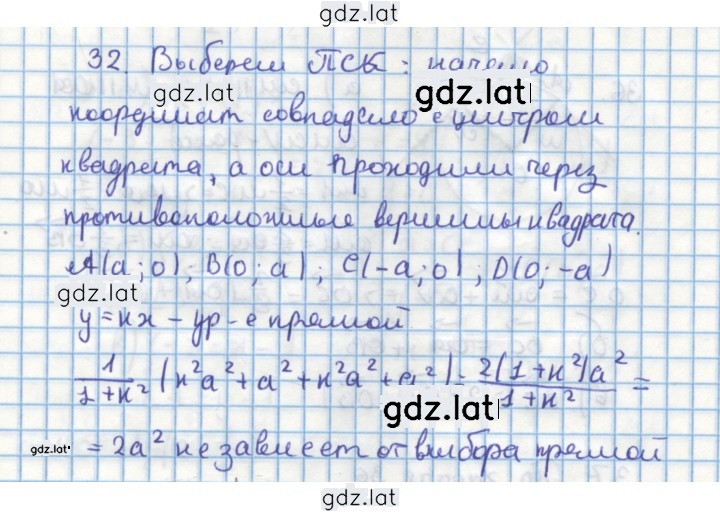 gdz.lat
32. Выберем ПСК: начало
gdz.lat
gdz.lat
координат совпадало с центром
квадрата, а оси проходили через
противоположные вершины квадрата.
A(a;0), B(0;a), C(-a;0), D(0;-a)
gdz.lat
y=kx - ур-е прямой
1/(1+k²) (k²a²+a²+k²a²+a²) = 2(1+k²)a²/(1+k²) =
gdz.lat
gdz.lat
= 2a² не зависеет от выбора прямой
gdz.lat